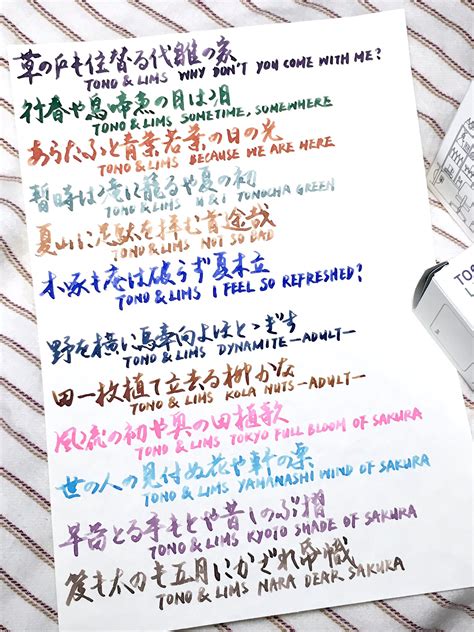 草の戸も住替る代雛の家
TONO & LIMS WHY DON'T YOU COME WITH ME?
行春や鳥啼魚の目は泪
TONO & LIMS SOMETIME, SOMEWHERE
あらたふと青葉若葉の日の光
TONO & LIMS BECAUSE WE ARE HERE
暫時は滝に籠るや夏の初
TONO & LIMS H & I TONOCHA GREEN
夏山に足駄を拝む首途哉
TONO & LIMS NOT SO BAD
木啄も庵は破らず夏木立
TONO & LIMS I FEEL SO REFRESHED?
野を横に馬牽向よほとゝぎす
TONO & LIMS DYNAMITE —ADULT—
田一枚植て立去る柳かな
TONO & LIMS KOLA NUTS —ADULT—
風流の初や奥の田植歌
TONO & LIMS TOKYO FULL BLOOM OF SAKURA
世の人の見付ぬ花や軒の栗
TONO & LIMS YAMANASHI WIND OF SAKURA
早苗とる手もとや昔しのぶ摺
TONO & LIMS KYOTO SHADE OF SAKURA
笈も太刀も五月にかざれ帋幟
TONO & LIMS NARA DEAR SAKURA